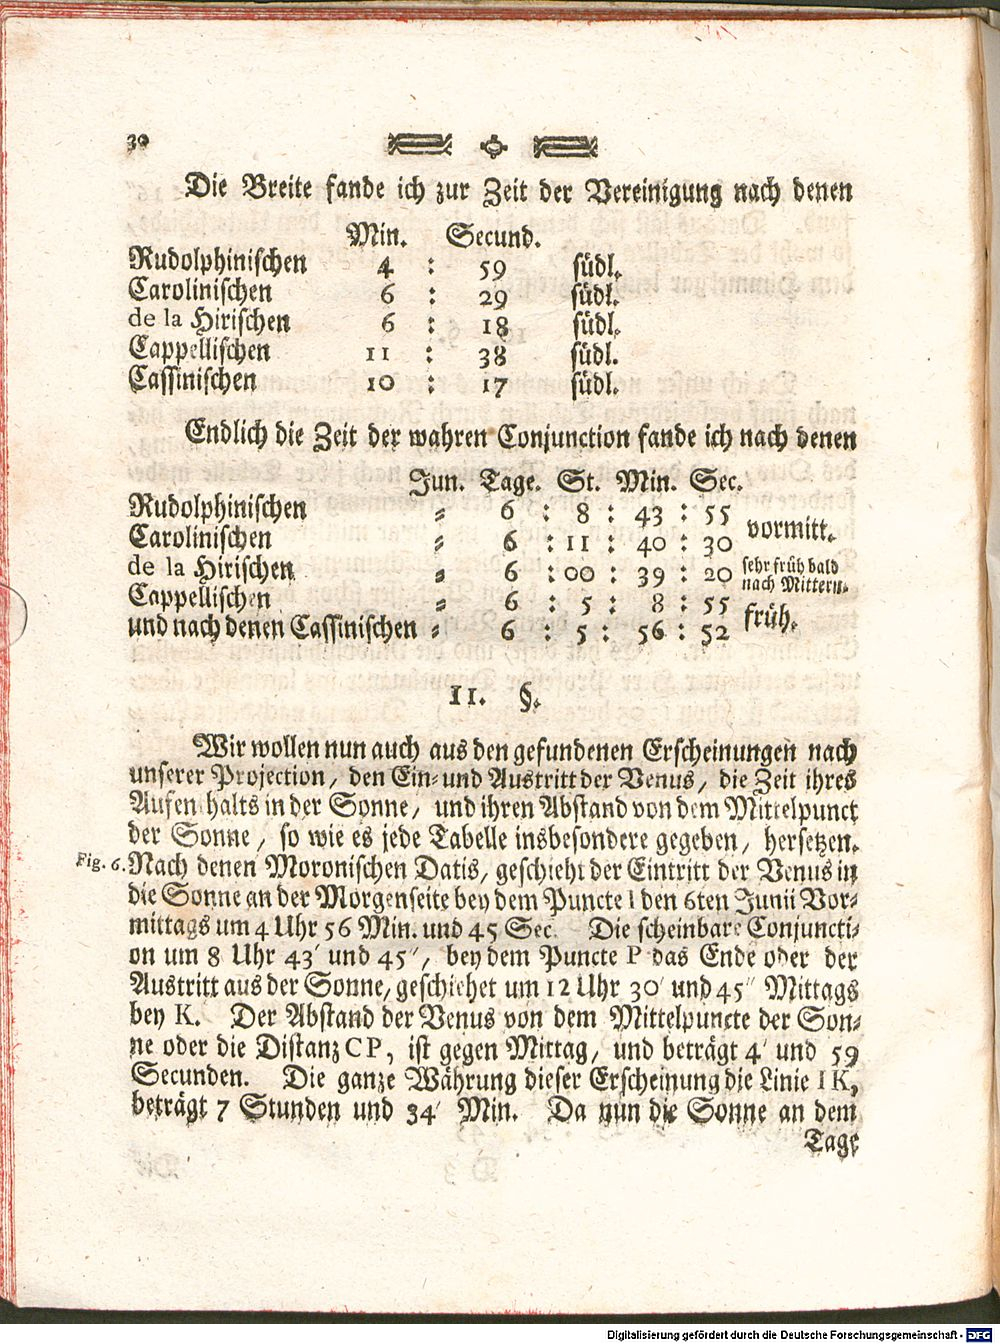 30
Die Breite fande ich zur Zeit der Vereinigung nach denen
Min. Secund.
Rudolphinischen 4 : 59 südl.
Carolinischen 6 : 29 südl.
de la Hirischen 6 : 18 südl.
Cappellischen 11 : 38 südl.
Cassinischen 10 : 17 südl.
Endlich die Zeit der wahren Conjunction fande ich nach denen
Jun. Tage. St. Min. Sec.
Rudolphinischen = 6 : 8 : 43 : 55 vormitt.
Carolinischen = 6 : 11 : 40 : 30
de la Hirischen = 6 : 00 : 39 : 20 sehr früh bald nach Mittern.
Cappellischen = 6 : 5 : 8 : 55 früh.
und nach denen Cassinischen = 6 : 5 : 56 : 52
11. §.
Wir wollen nun auch aus den gefundenen Erscheinungen nach
unserer Projection, den Ein- und Austritt der Venus, die Zeit ihres
Aufenthalts in der Sonne, und ihren Abstand von dem Mittelpunct
der Sonne, so wie es jede Tabelle insbesondere gegeben, hersetzen.
Fig. 6. Nach denen Moronischen Datis, geschieht der Eintritt der Venus in
die Sonne an der Morgenseite bey dem Puncte I den 6ten Junii Vor-
mittags um 4 Uhr 56 Min. und 45 Sec. Die scheinbare Conjuncti-
on um 8 Uhr 43′ und 45″, bey dem Puncte P das Ende oder der
Austritt aus der Sonne, geschiehet um 12 Uhr 30′ und 45″ Mittags
bey K. Der Abstand der Venus von dem Mittelpuncte der Son-
ne oder die Distanz CP, ist gegen Mittag, und beträgt 4′ und 59
Secunden. Die ganze Währung dieser Erscheinung die Linie IK,
beträgt 7 Stunden und 34′ Min. Da nun die Sonne an dem
Tage
Digitalisierung gefördert durch die Deutsche Forschungsgemeinschaft - DFG